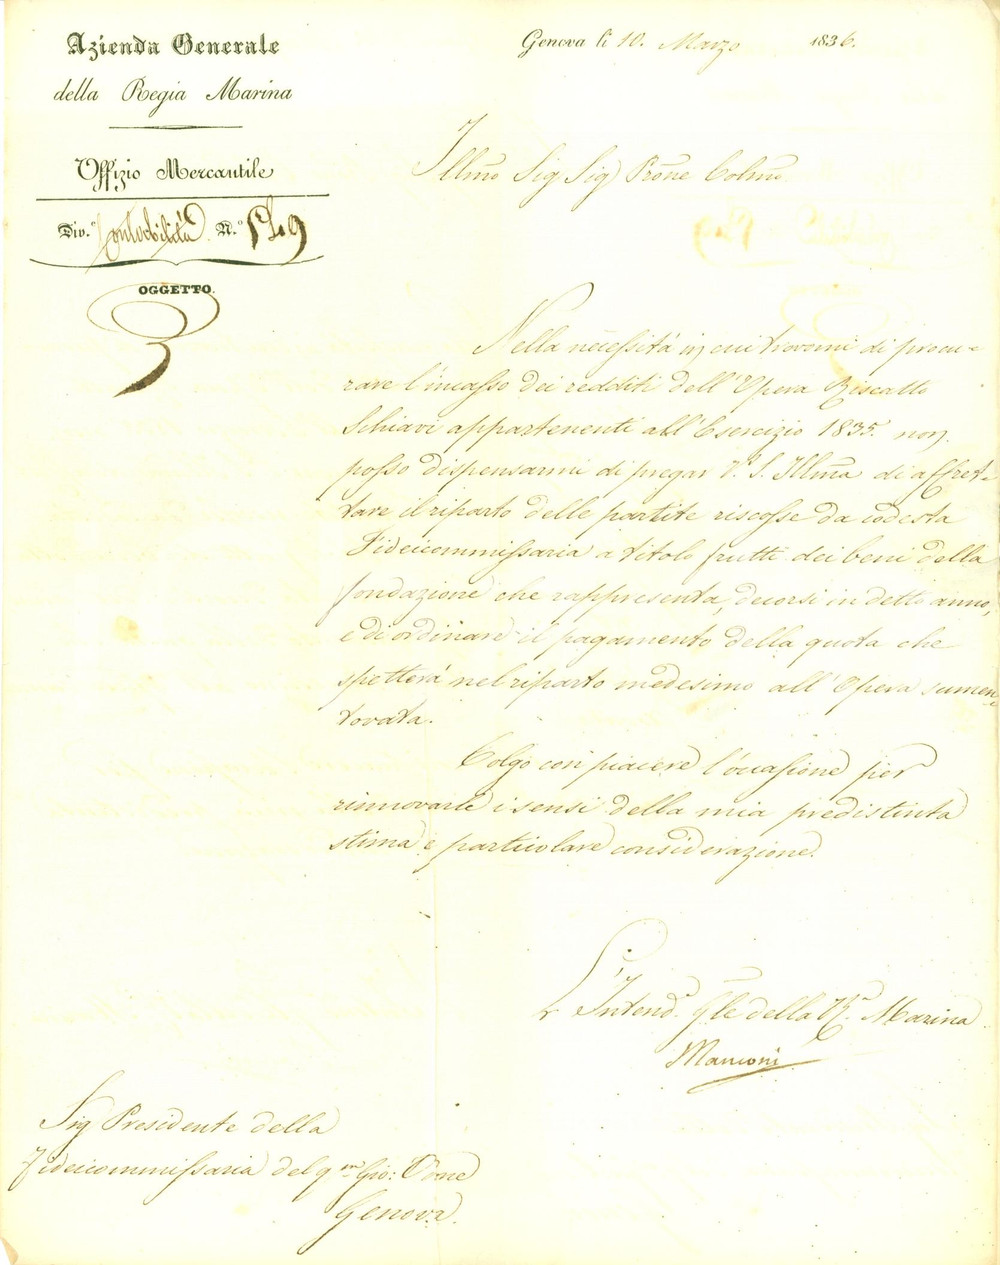 Azienda Generale
della Regia Marina
Offizio Mercantile
Div.e Contabilità N.o
OGGETTO.
Genova li 10. Marzo 1836.
Illmo Sig Sig Prone Colmo
Nella necessità in cui trovomi di procu=
rare l'incasso dei redditi dell'Opera Riscatto
Schiavi appartenenti all'Esercizio 1835. non
posso dispensarmi di pregar V. S. Illma di affret=
tare il riparto delle partite riscosse da codesta
Fideicommissaria a titolo frutti dei beni della
fondazione che rappresenta, decorsi in detto anno,
e di ordinare il pagamento della quota che
spetterà nel riparto medesimo all'Opera sumen=
tovata.
Colgo con piacere l'occasione per
rinnovarle i sensi della mia predistinta
stima e particolare considerazione.
L'Intend.e Gle della R.a Marina
Sig Presidente della
Fideicommissaria del qm Gio:
Genova.